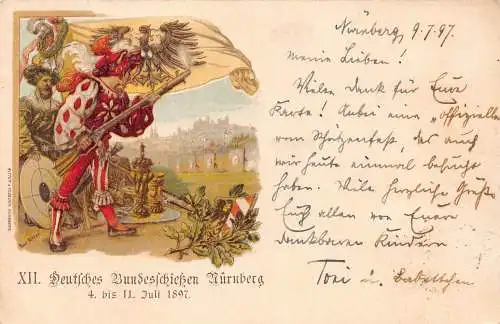 Nürnberg, 9.7.97
meine Lieben!
Vielen Dank für Eure
Karte! Anbei eine „offizielle"
vom Schützenfest, das auch
wir heute einmal besucht
haben. Viele herzliche Grüße
Euch allen von Euern
dankbaren Kindern
Toni u. Babettchen
XII. Deutsches Bundesschießen Nürnberg
4. bis 11. Juli 1897.